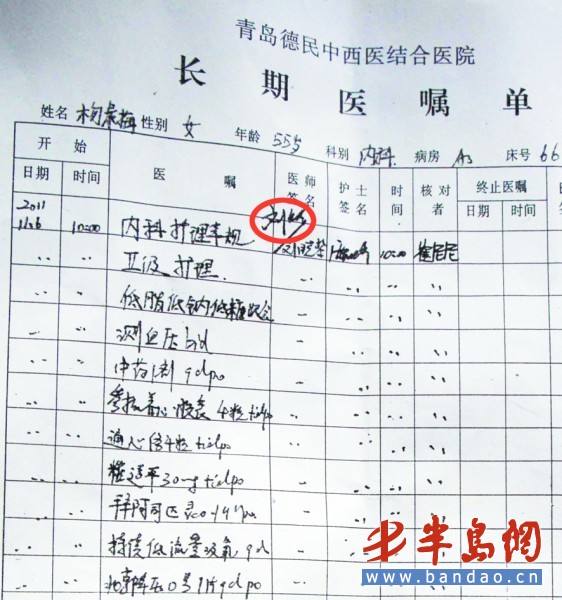 青岛德民中西医结合医院
长期医嘱单
姓名 性别 女 年龄 55岁 科别 内科 病房 床号 66
开始 医嘱 医师签名 护士签名 时间 核对者 终止医嘱
日期 时间 日期 时间
2011
11.26 10:00 内科护理常规 10:00
II级护理
低脂低钠低糖饮食
测血压 bid
中药1剂 qdpo
参松养心胶囊 4粒 tidpo
通心络4粒 tidpo
糖适平30mg tidpo
拜阿司匹灵
持续低流量吸氧 qd
北京降压0号 1片 qdpo
半岛網
www.bandao.cn